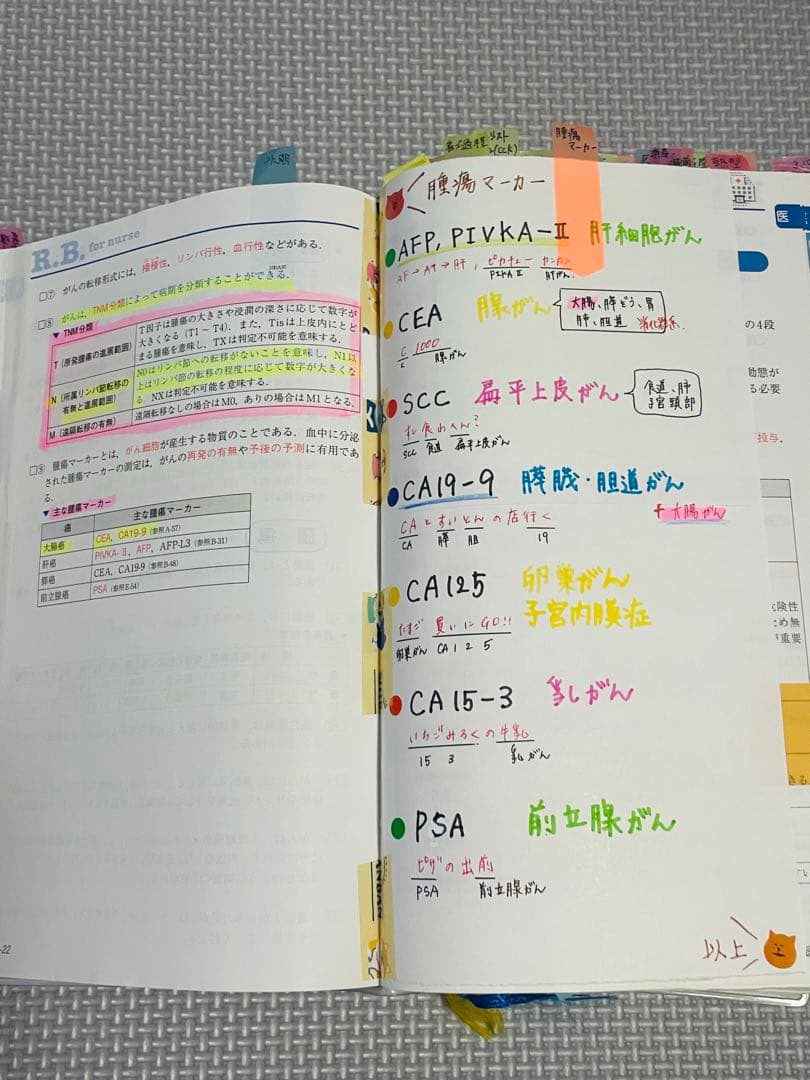 腫瘍
マーカー
R.B. for nurse
□⑦ がんの転移形式には，播種性，リンパ行性，血行性などがある．
□⑧ がんは，TNM分類によって病期を分類することができる．
▼ TNM分類
T（原発腫瘍の進展範囲）
T因子は腫瘍の大きさや浸潤の深さに応じて数字が
大きくなる（T1～T4）．また，Tisは上皮内にとど
まる腫瘍を意味し，TXは判定不可能を意味する．
N（所属リンパ節転移の
有無と進展範囲）
N0はリンパ節への転移がないことを意味し，N1以
上はリンパ節の転移の程度に応じて数字が大きくな
る．NXは判定不可能を意味する．
M（遠隔転移の有無）
遠隔転移なしの場合はM0，ありの場合はM1となる．
□⑨ 腫瘍マーカーとは，がん細胞が産生する物質のことである．血中に分泌
された腫瘍マーカーの測定は，がんの再発の有無や予後の予測に有用であ
る．
▼ 主な腫瘍マーカー
癌 主な腫瘍マーカー
大腸癌 CEA，CA19-9（参照A-57）
肝癌 PIVKA-Ⅱ，AFP，AFP-L3（参照B-31）
膵癌 CEA，CA19-9（参照B-48）
前立腺癌 PSA（参照E-54）
-22
腫瘍マーカー
AFP, PIVKA-Ⅱ 肝細胞がん
ピカチュー カンカン
PIVKAⅡ 肝がん
CEA 腺がん
大腸、膵、胆どう、胃
肺、胆道
消化器系
C 1000
腺がん
SCC 扁平上皮がん
食道、肺
子宮頸部
私 食わへん？
SCC 食道 扁平上皮がん
CA19-9 膵臓・胆道がん
+ 大腸がん
CAとすいとんの店行く
CA 膵 胆 19
CA125 卵巣がん
子宮内膜症
たまご 買いにGO!!
卵巣がん CA 1 2 5
CA15-3 乳がん
いちごみるくの牛乳
15 3 乳がん
PSA 前立腺がん
ピザの出前
PSA 前立腺がん
以上
医
の4段
動態が
る必要
投与，
危険性
ため無
が重要
きる